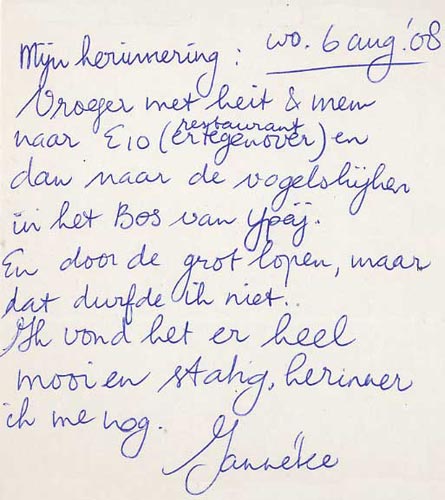 Mijn herinnering : wo. 6 aug.'08
Vroeger met heit & mem
restaurant
naar E10 (ertegenover) en
dan naar de vogels kijken
in het Bos van Ypeij.
En door de grot lopen, maar
dat durfde ik niet..
Ik vond het er heel
mooi en statig, herinner
ik me nog.
Janneke